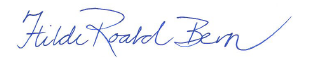 Hilde Roald Bern